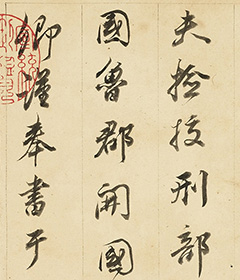 夫撿挍刑部
國魯郡開國
卿謹奉書于